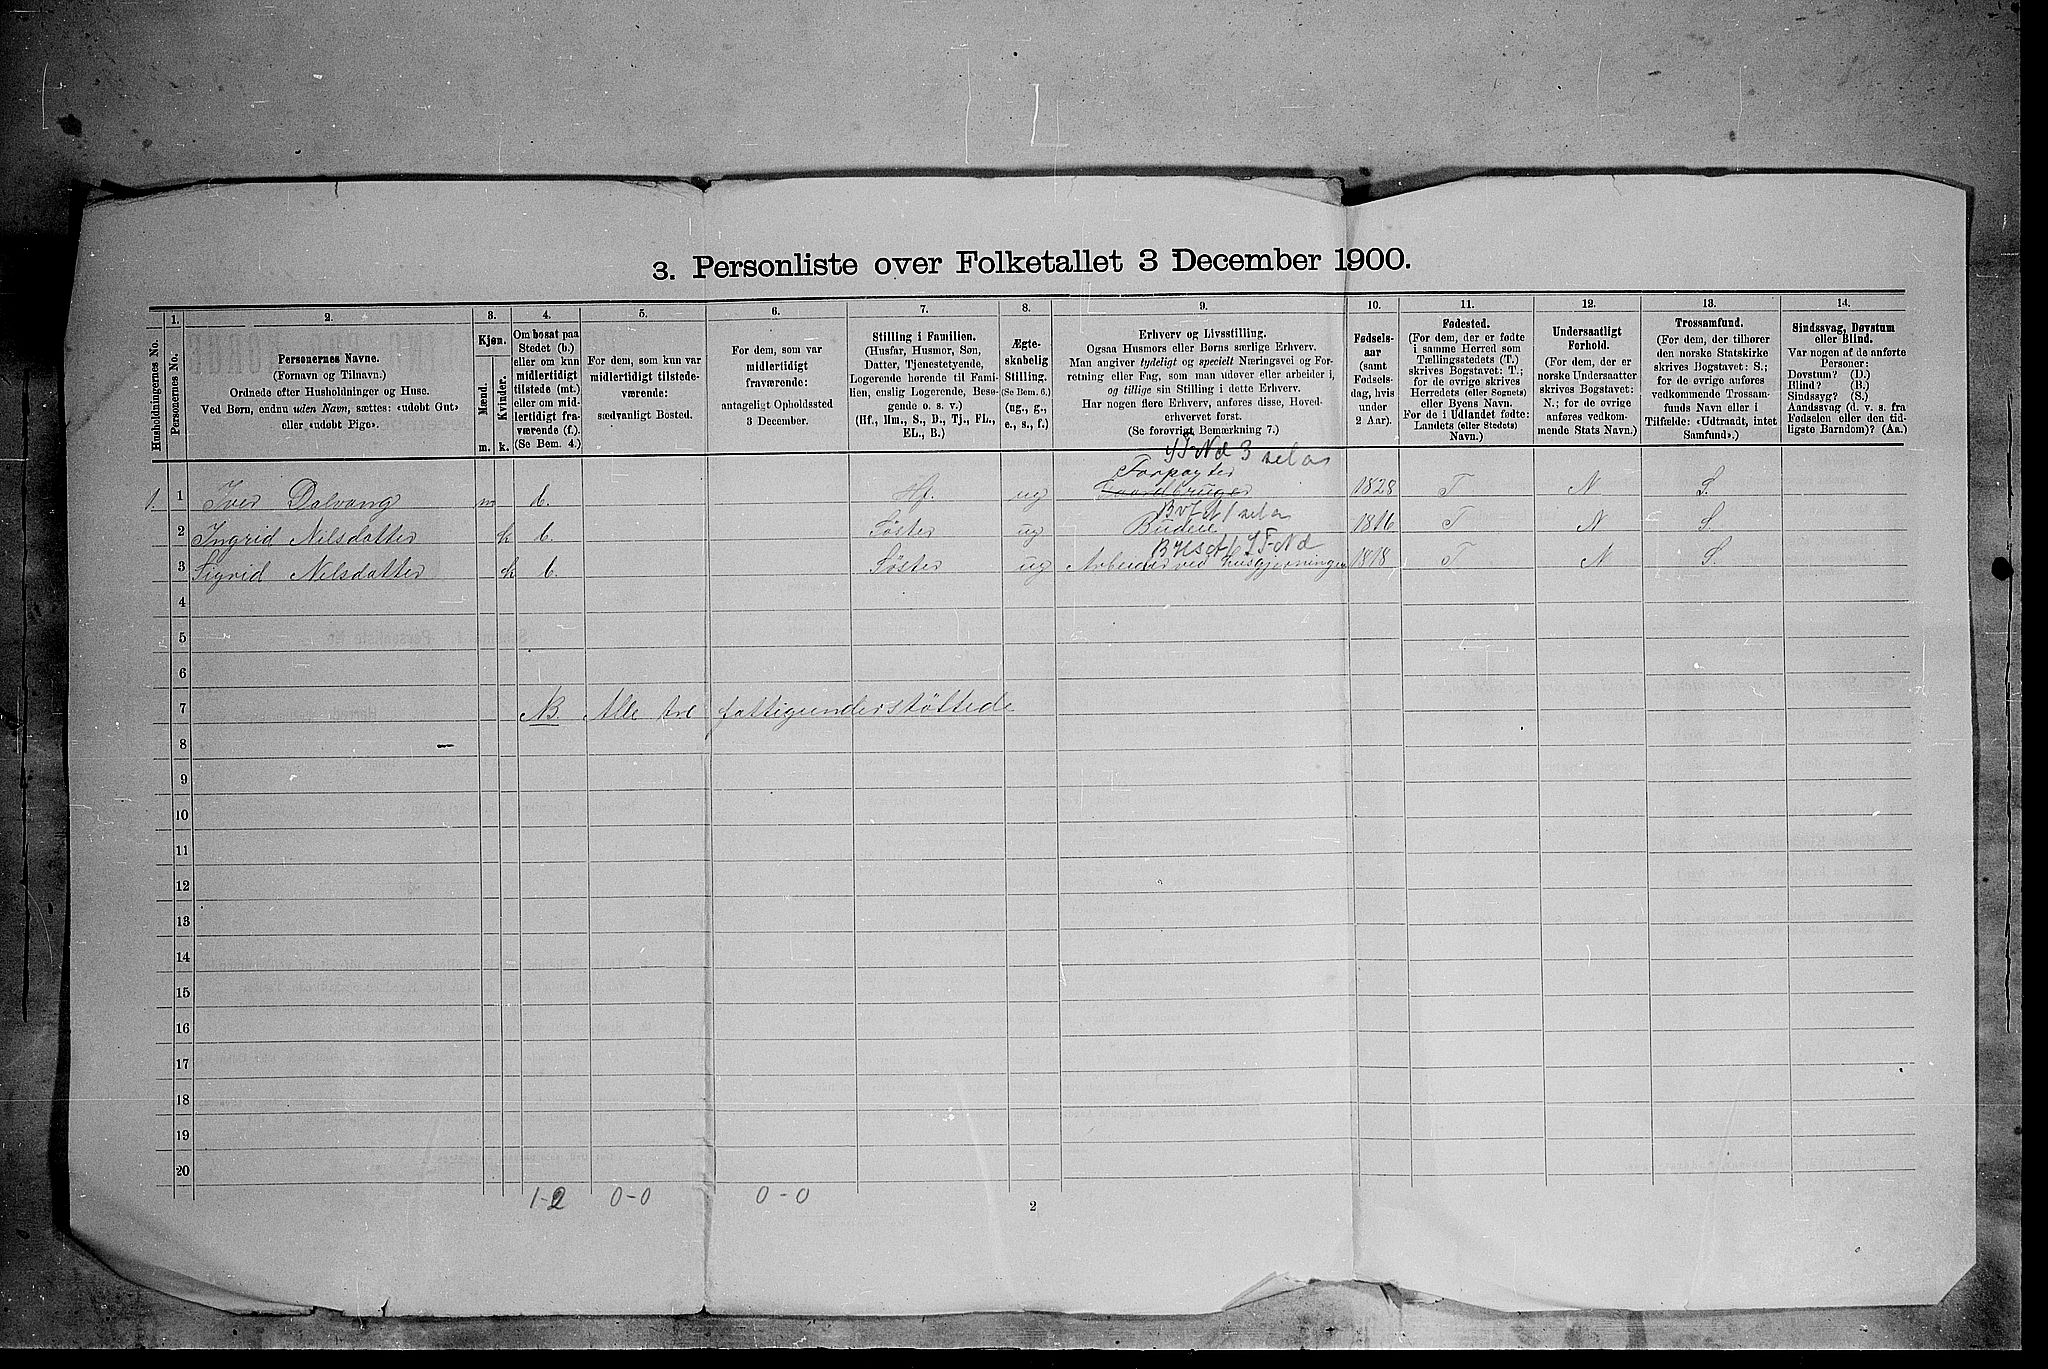 3. Personliste over Folketallet 3 December 1900.
1. 2. 3. 4. 5. 6. 7. 8. 9. 10. 11. 12. 13. 14.
Husholdningernes No.
Personernes No.
Personernes Navne.
(Fornavn og Tilnavn.)
Ordnede efter Husholdninger og Huse.
Ved Børn, endnu uden Navn, sættes: «udøbt Gut»
eller «udøbt Pige».
Kjøn.
Mænd.
Kvinder.
m. k.
Om bosat paa
Stedet (b.)
eller om kun
midlertidigt
tilstede (mt.)
eller om mid-
lertidigt fra-
værende (f.).
(Se Bem. 4.)
For dem, som kun var
midlertidigt tilstede-
værende:
sædvanligt Bosted.
For dem, som var
midlertidigt
fraværende:
antageligt Opholdssted
3 December.
Stilling i Familien.
(Husfar, Husmor, Søn,
Datter, Tjenestetyende,
Logerende hørende til Fami-
lien, enslig Logerende, Besø-
gende o. s. v.)
(Hf., Hm., S., D., Tj., FL.,
EL., B.)
Ægte-
skabelig
Stilling.
(Se Bem. 6.)
(ug., g.,
e., s., f.)
Erhverv og Livsstilling.
Ogsaa Husmors eller Børns særlige Erhverv.
Man angiver tydeligt og specielt Næringsvei og For-
retning eller Fag, som man udøver eller arbeider i,
og tillige sin Stilling i dette Erhverv.
Har nogen flere Erhverv, anføres disse, Hoved-
erhvervet først.
(Se forøvrigt Bemærkning 7.)
Fødsels-
aar
(samt
Fødsels-
dag, hvis
under
2 Aar).
Fødested.
(For dem, der er fødte
i samme Herred som
Tællingsstedets (T.)
skrives Bogstavet: T.;
for de øvrige skrives
Herredets (eller Sognets)
eller Byens Navn.
For de i Udlandet fødte:
Landets (eller Stedets)
Navn.)
Undersaatligt
Forhold.
(For dem, der er
norske Undersaatter
skrives Bogstavet:
N.; for de øvrige
anføres vedkom-
mende Stats Navn.)
Trossamfund.
(For dem, der tilhører
den norske Statskirke
skrives Bogstavet: S.;
for de øvrige anføres
vedkommende Trossam-
funds Navn eller i
Tilfælde: «Udtraadt, intet
Samfund».)
Sindssvag, Døvstum
eller Blind.
Var nogen af de anførte
Personer:
Døvstum? (D.)
Blind? (B.)
Sindssyg? (S.)
Aandssvag (d. v. s. fra
Fødselen eller den tid-
ligste Barndom)? (Aa.)
Forpagter
1. 1 Iver Dalvang m b. Hf. ug Gaardbruger 1828 T N S.
2 Ingrid Nilsdatter k b. Søster ug Budeie 1816 T N S.
3 Sigrid Nilsdatter k b. Søster ug Arbeider ved husgjerninger 1818 T N S.
4
5
6
7 NB. Alle tre fattigunderstøttede
8
9
10
11
12
13
14
15
16
17
18
19
20
1-2 0-0 0-0
2